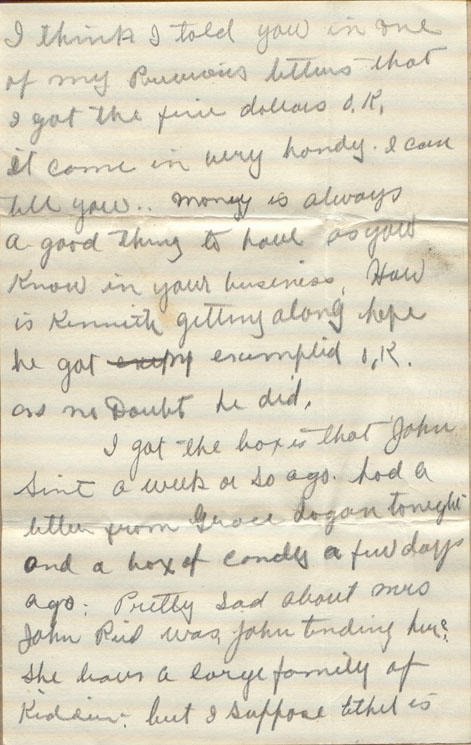 I think I told you in one
of my Previous letters that
I got the five dollars O.K,
it come in very handy. I can
tell you.. money is always
a good thing to have as you
Know in your business, How
is Kennith getting along hope
he got exemplied O,K.
as no Doubt he did,
I got the box is that John
Sint a week or so ago. had a
letter from Grace Logan tonight
and a box of candy a few days
ago: Pretty sad about mrs
John Reid was John tending her?
She leaves a large family of
but I suppose Ethel is